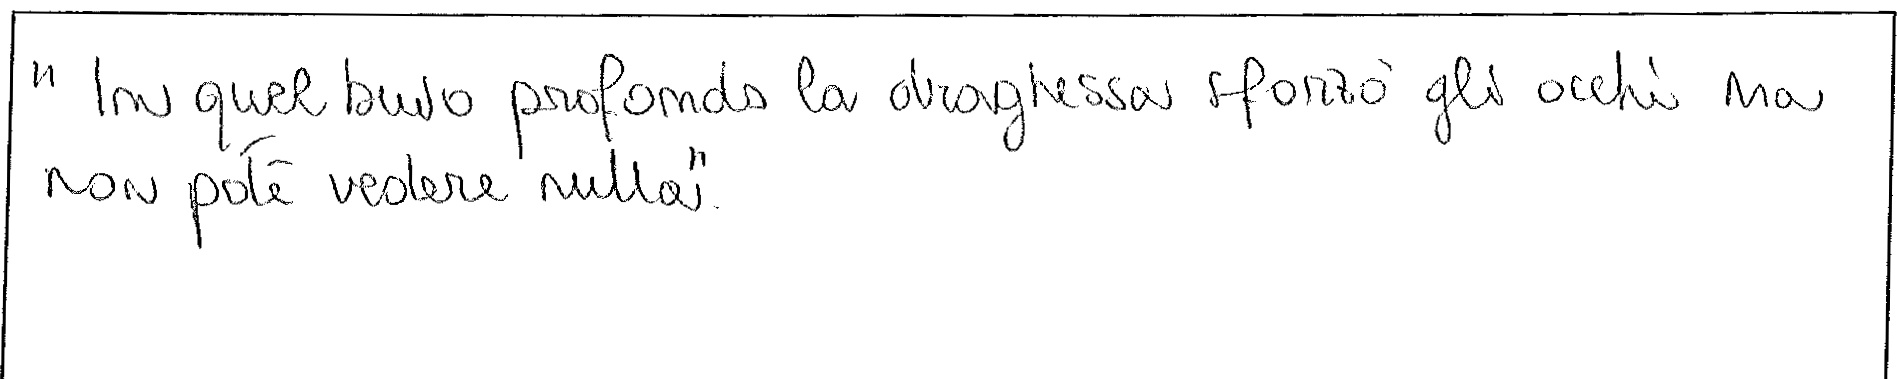 " In quel buio profondo la draghessa sforzò gli occhi ma
non poté vedere nulla".